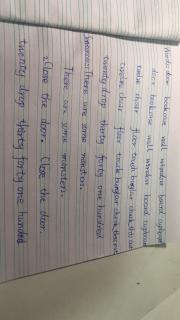 Words: door bookcase wall window board cupboard
door bookcase wall window board cupboard
twelve chair floor touch
twelve chair floor touch
twenty drop thirty forty one hundred
Sentences: There are some monsters.
There are some monsters.
Close the door. Close the door.
twenty drop thirty forty one hundred